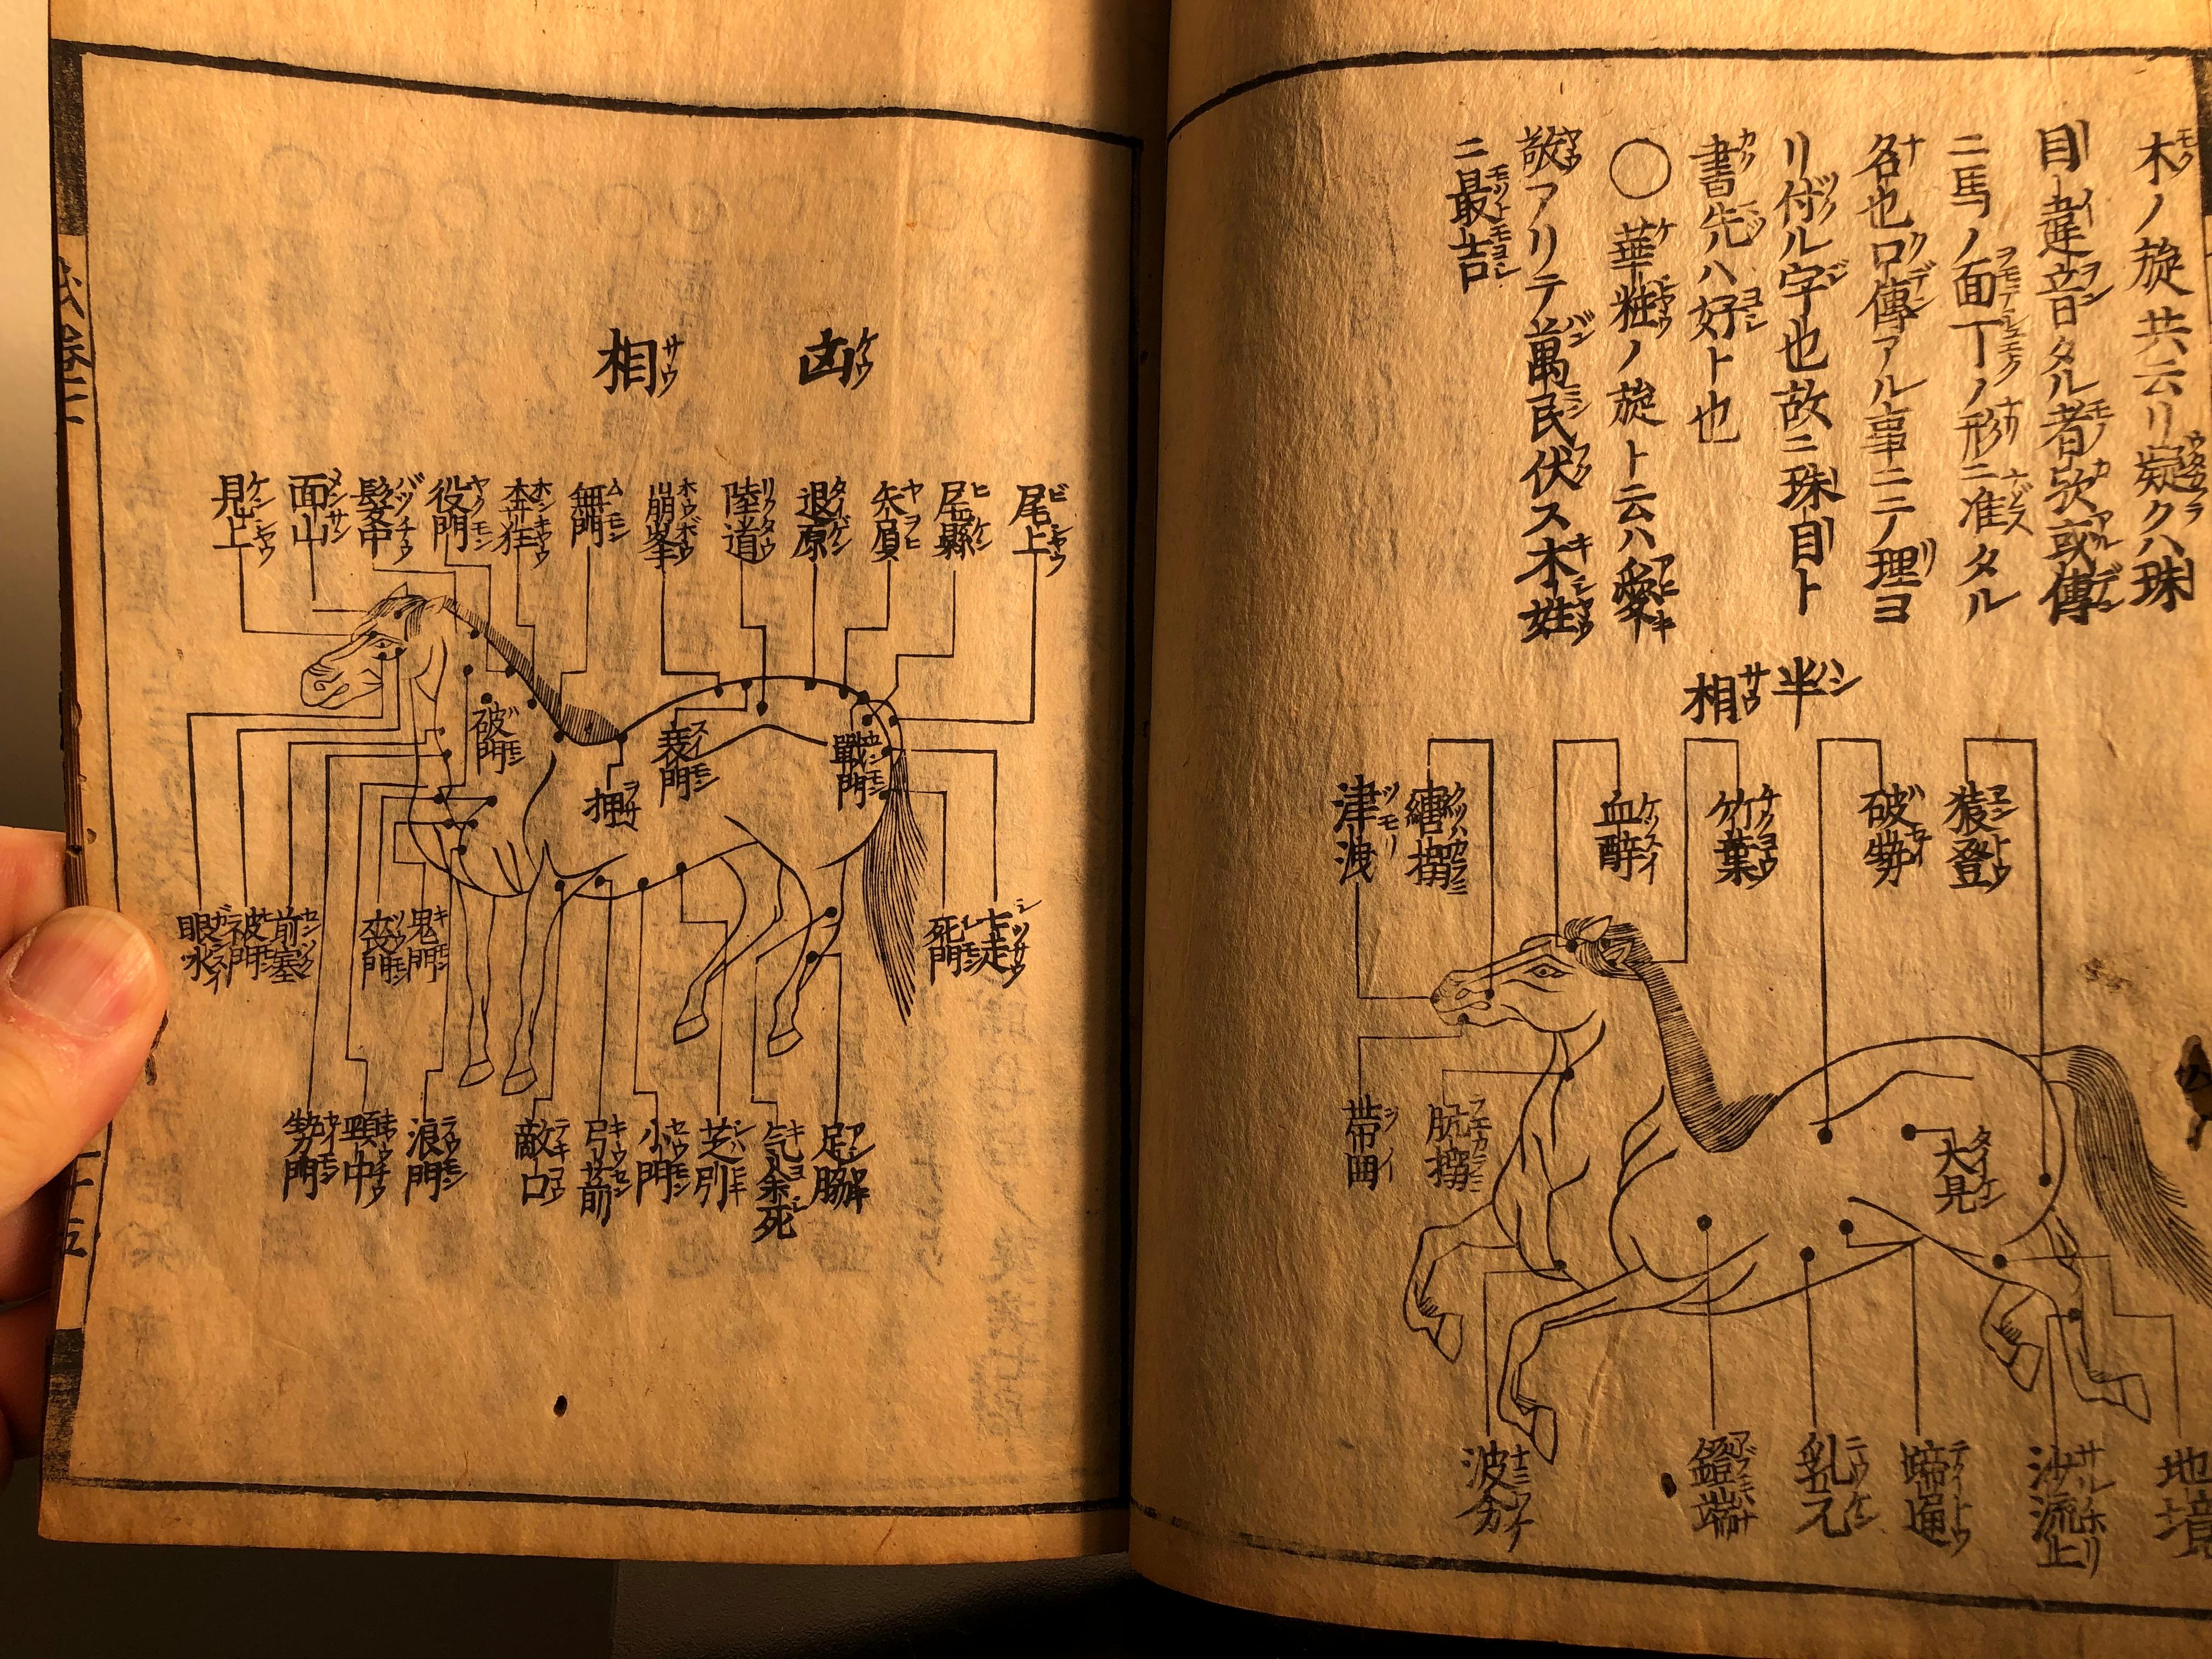 木ノ旋共云リ疑クハ珠
目ト違音タル者歟或傳
ニ馬ノ面丁ノ形ニ准タル
名也口傳アル事ニテ理ヨ
リ付ル字也故ニ珠目ト
書先ハ好ト也
○華粧ノ旋ト云ハ愛
敬アリテ萬民伏ス木姓
ニ最吉
半相
猿登
破勢
竹葉
血酔
津洩
帯田
大見
波分
鐙端
乳見
蹄通
沙流上
地境
凶相
尾上
尾縣
矢屓
退原
陸道
崩峯
無門
奔狂
役門
髪中
面山
見上
破門
押
衰門
戰門
七走
死門
鬼門
前塞
被門
眼水
足脇
気余死
芝引
小門
弓前
敵口
浪門
頸中
勢門